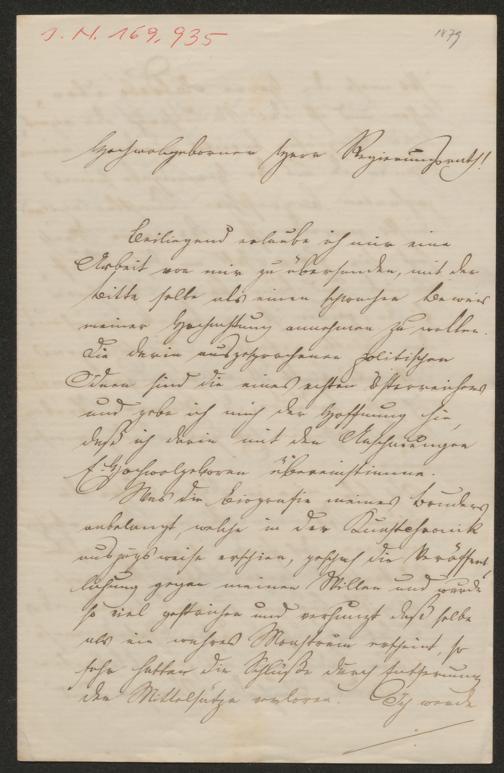 J. N. 169,935
1879
Hochwolgeborner Herr Regierungsrath!
Beiliegend erlaube ich mir eine
Arbeit von mir zu übersenden, mit der
Bitte selbe als einen schwachen Beweis
meiner Hochachtung annehmen zu wollen.
Die darin ausgesprochenen politischen
Ideen sind die eines echten Österreichers
und gebe ich mich der Hoffnung hin,
daß ich darin mit den Anschauungen
E. Hochwolgeboren übereinstimme.
Was die Biografie meines Bruders
anbelangt, welche in der Kunstchronik
auszugsweise erschien, geschah die Veröffent
lichung gegen meinen Willen und wurde
so viel gestrichen und verhunzt daß selbe
als ein wahres Monstrum erscheint, so
sehr hatten die Schlüße durch Entfernung
der Mittelsätze verloren. Ich werde